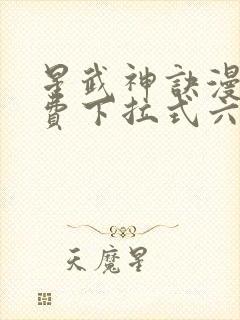 星武神訣漫
費下拉式六
天魔星